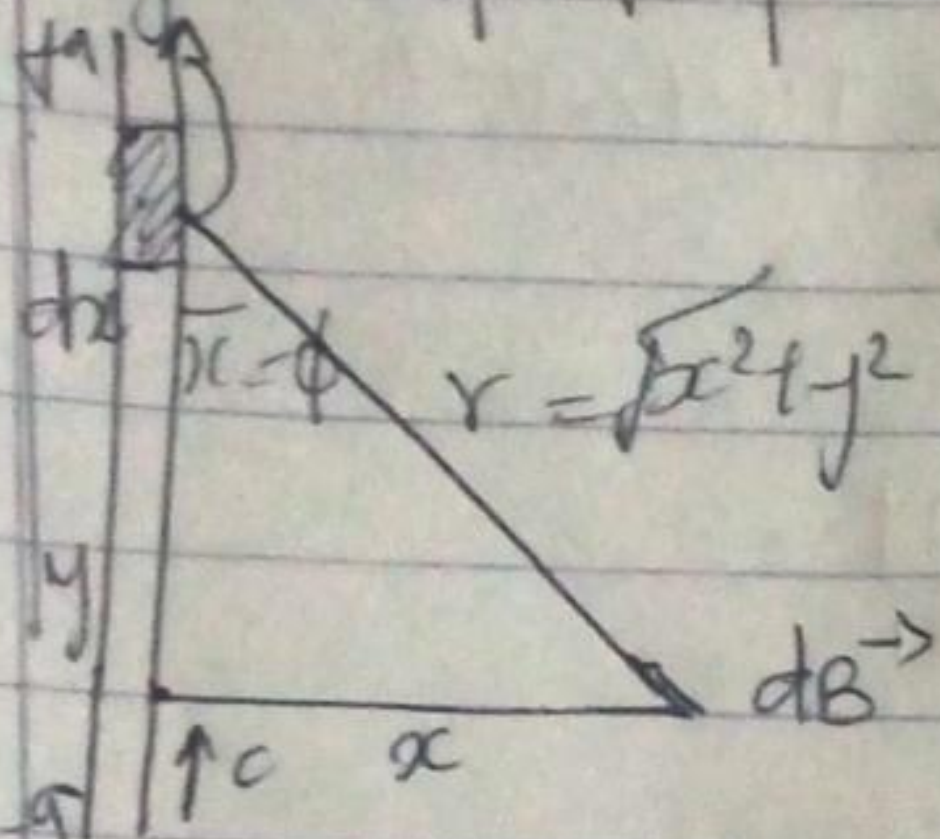 +a
dx
π-ϕ
r = √x²+y²
y
dB→
c
x
-a